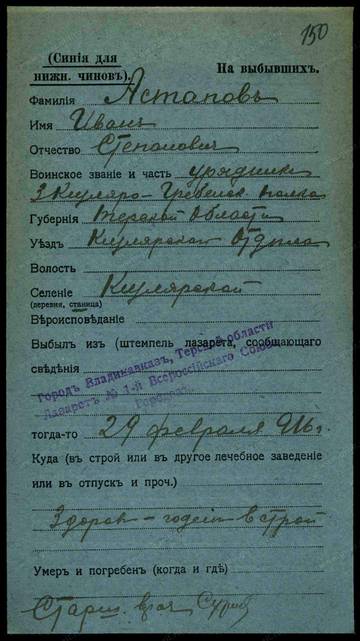 150
(Синія для
нижн. чиновъ).
На выбывшихъ.
Фамилія Астаповъ
Имя Иванъ
Отчество Степановичъ
Воинское званіе и часть урядникъ
3 Кизляро-Гребенск. полка
Губернія Терской Области
Уѣздъ Кизлярскаго Отдѣла
Волость
Селеніе Кизлярской
(деревня, станица)
Вѣроисповѣданіе
Выбылъ изъ (штемпель лазарета, сообщающаго
свѣдѣнія)
Городъ Владикавказъ, Терской области
Лазаретъ № 1-й Всероссійскаго Союза
Городовъ.
тогда-то 29 февраля 916 г.
Куда (въ строй или въ другое лечебное заведеніе
или въ отпускъ и проч.)
Здоров - годенъ въ строй
Умеръ и погребенъ (когда и гдѣ)
Старш. врач